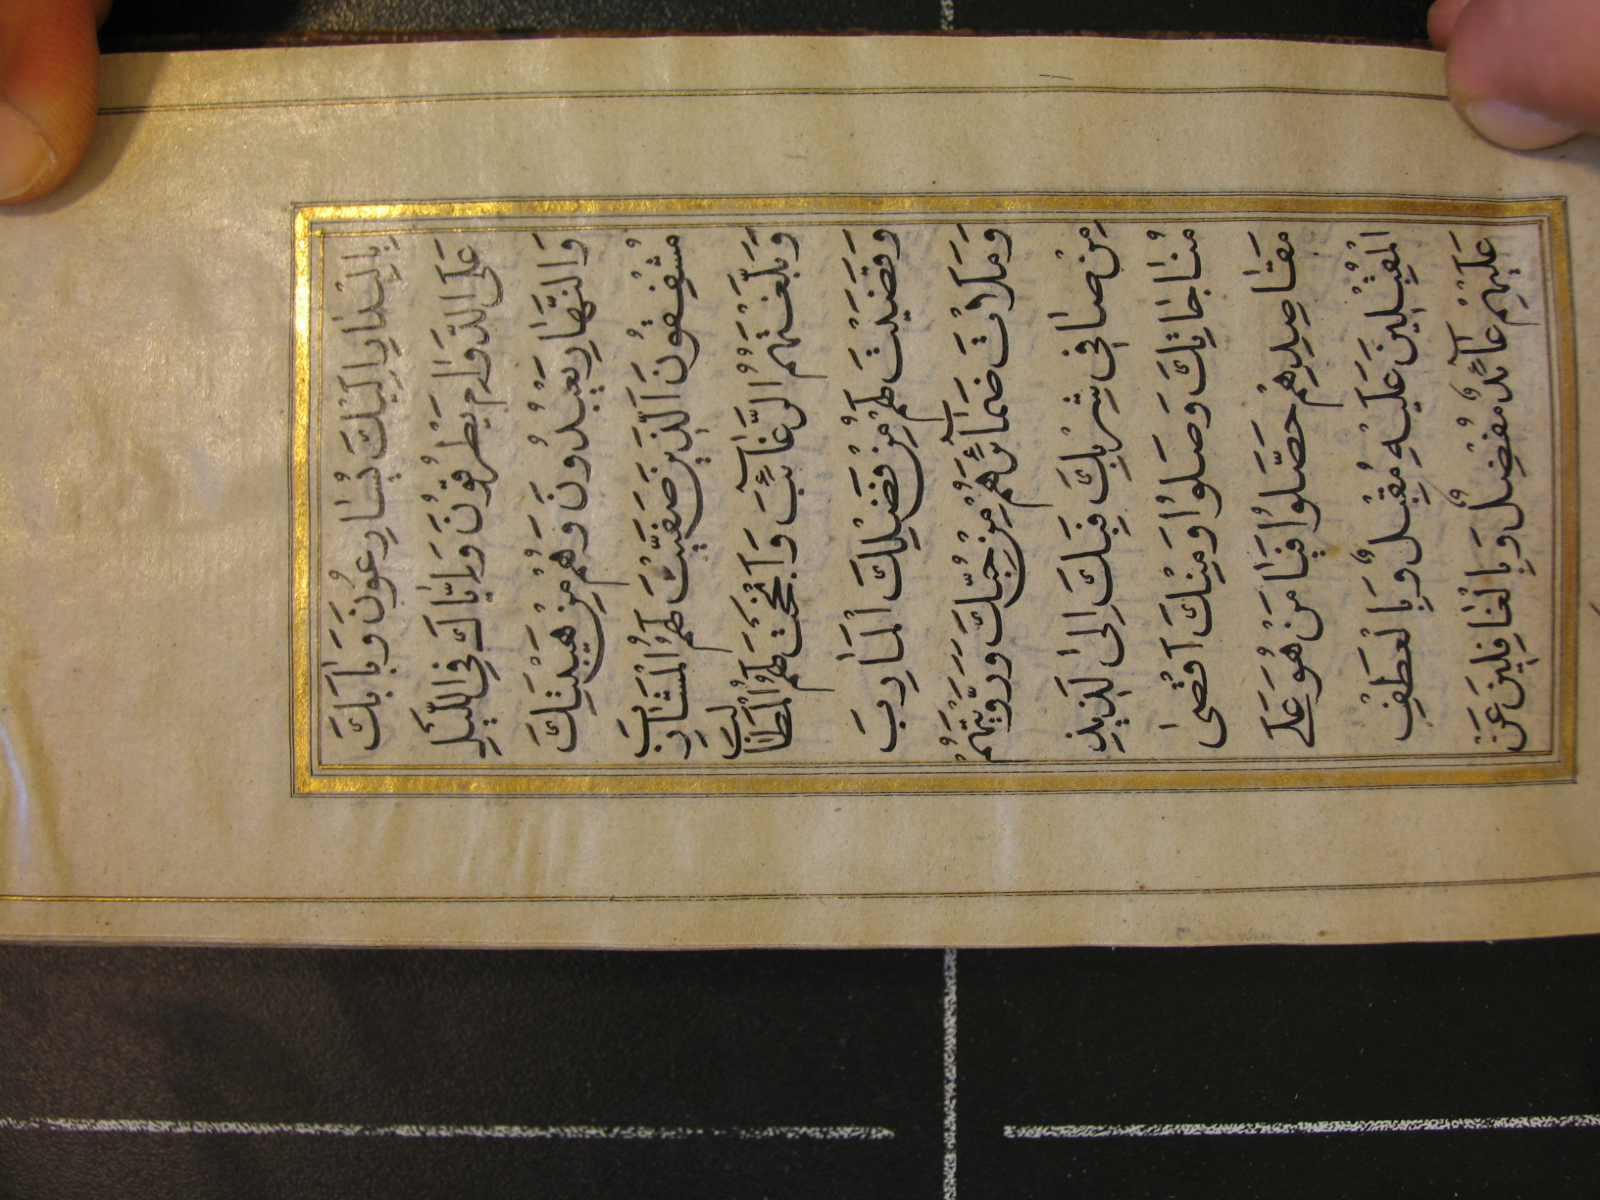 بِالْبِدَارِ اِلَيْكَ يُسَارِعُونَ وَبَابَكَ
عَلَى الدَّوَامِ يَطْرُقُونَ وَاِيَّاكَ فِى اللَّيْلِ
وَالنَّهَارِ يَعْبُدُونَ وَهُمْ مِنْ هَيْبَتِكَ
مُشْفِقُونَ اَلَّذِينَ صَفَّيْتَ لَهُمُ الْمَشَارِبَ
وَبَلَّغْتَهُمُ الرَّغَآئِبَ وَاَنْجَحْتَ لَهُمُ الْمَطَالِبَ
وَقَضَيْتَ لَهُمْ مِنْ فَضْلِكَ الْمَاٰرِبَ
وَمَلَاْتَ ضَمَآئِرَهُمْ مِنْ حُبِّكَ وَرَوَّيْتَهُمْ
مِنْ صَافِى شِرْبِكَ فَبِكَ اِلٰى لَذِيذِ
مُنَاجَاتِكَ وَصَلُوا وَمِنْكَ اَقْصٰى
مَقَاصِدِهِمْ حَصَّلُوا فَيَا مَنْ هُوَ عَلَى
الْمُقْبِلِينَ عَلَيْهِ مُقْبِلٌ وَبِالْعَطْفِ
عَلَيْهِمْ عَآئِدٌ مُفْضِلٌ وَبِالْغَافِلِينَ عَنْ